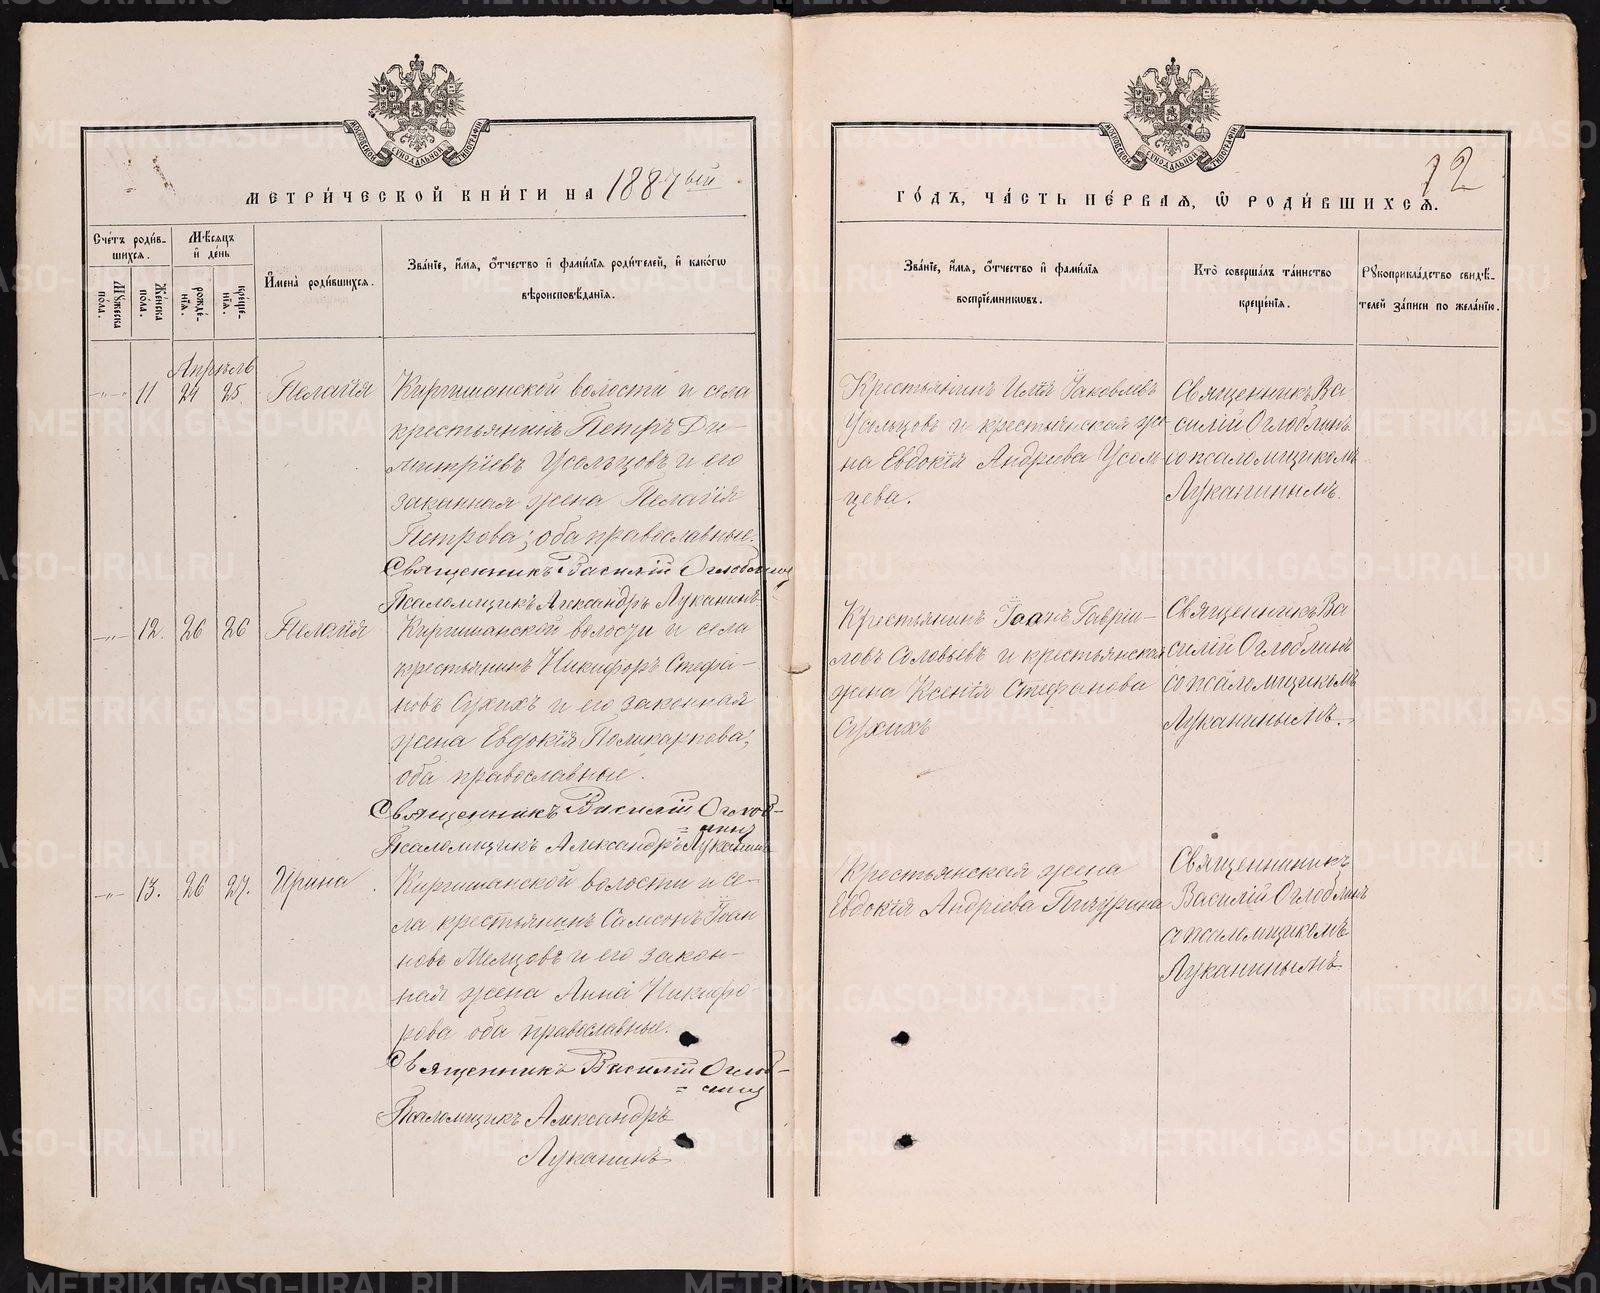 МЕТРИ́ЧЕСКОЙ КНИ́ГИ НА 1887 ый
Сче́тъ роди́в-
шихся.
Мѣ́сяцъ
и҆ де́нь
Мꙋ́жеска
по́ла.
Же́нска
по́ла.
рожде́-
нїѧ.
креще́-
нїѧ.
И҆мена̀ роди́вшихсѧ.
Зва́нїе, и҆́мѧ, ѻ҆́тчество и҆ фами́лїѧ роди́телей, и҆ како́гѡ
вѣроисповѣ́данїѧ.
Апрѣль
-„- 11 24 25 Пелагія
Киргишанской волости и села
крестьянинъ Петръ Ди-
митріевъ Усольцовъ и его
законная жена Пелагія
Петрова; оба православные.
Священникъ Василій Оглоблинъ
Псаломщикъ Александръ Луканинъ
-„- 12. 26 26 Пелагія
Киргишанской волости и села
крестьянинъ Никифоръ Стефа-
новъ Сухихъ и его законная
жена Евдокія Поликарпова;
оба православные.
Священникъ Василій Оглоб-
=линъ
Псаломщикъ Александръ Луканинъ
-„- 13. 26 27. Ирина
Киргишанской волости и се-
ла крестьянинъ Самсонъ Іоан
новъ и его закон-
ная жена Анна Никифо-
рова оба православные.
Священникъ Василій Оглоб-
=линъ
Псаломщикъ Александръ
Луканинъ
12
ГО́ДЪ, ЧА́СТЬ ПЕ́РВАѦ, Ѿ РОДИ́ВШИХСѦ.
Зва́нїе, и҆́мѧ, ѻ҆́тчество и҆ фами́лїѧ
воспрїе́мникѡвъ.
Кто̀ соверша́лъ та́инство
креще́нїѧ.
Рꙋкоприкла́дство свидѣ́-
телей за́писи по жела́нїю.
Крестьянинъ Илія Іаковлевъ
Усольцовъ и крестьянская же
на Евдокія Андреева Усоль
цева.
Священникъ Ва
силій Оглоблинъ
со псаломщикомъ
Луканинымъ.
Крестьянинъ Іоанъ Гавріи-
ловъ Соловьевъ и крестьянская
жена Ксенія Стефанова
Сухихъ
Священникъ Ва
силій Оглоблинъ
со псаломщикомъ
Луканинымъ.
Крестьянская жена
Евдокія Андріева Пичурина
Священникъ
Василій Оглоблинъ
с псаломщикомъ
Луканинымъ
METRIKI.GASO-URAL.RU